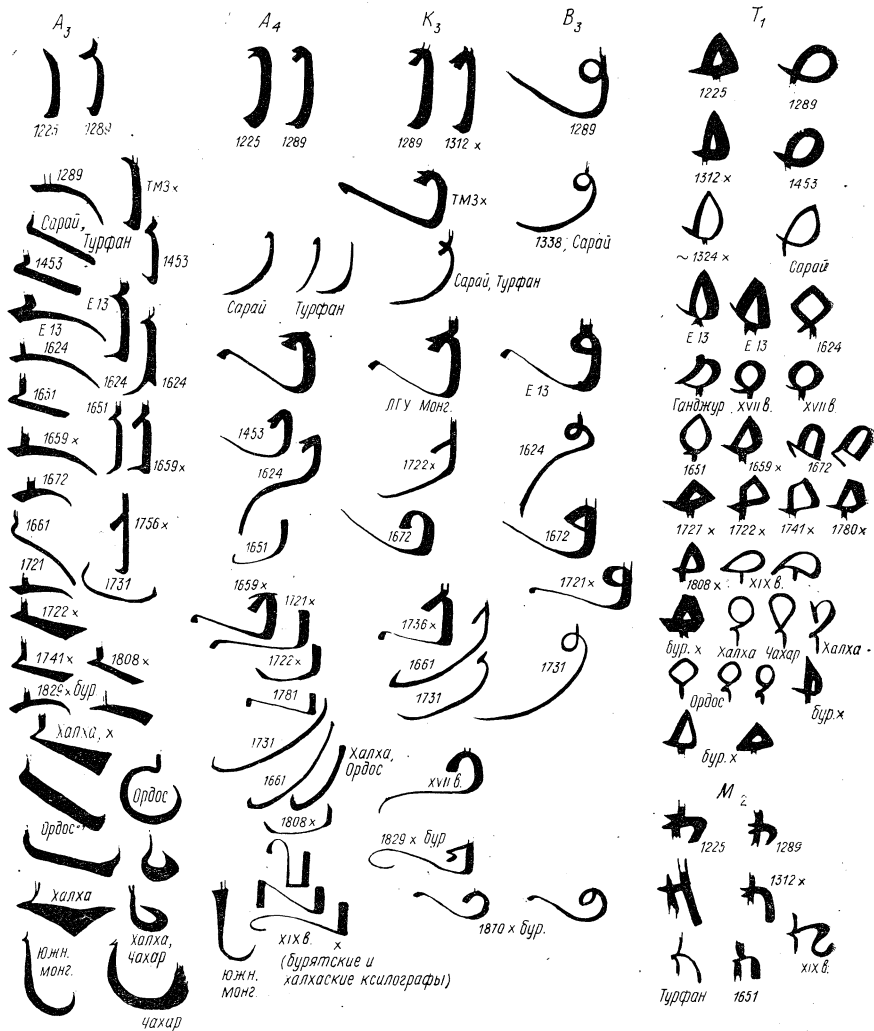 A₃
1225 1289
1289
ТМЗ х
Сарай, Турфан
1453
1453
Е 13
Е 13
1624
1624
1624
1651
1651
1659 х
1659 х
1672
1661
1756 х
1721
1731
1722 х
1741 х
1808 х
1829 х бур
Халха, х
Ордос
Ордос
Халха
Халха, Чахар
Южн. монг.
Чахар
A₄
1225 1289
Сарай Турфан
1453
1624
1651
1659 х
1721 х
1722 х
1781
1731
1661
Халха, Ордос
1808 х
XIX в. х
(бурятские и халхаские ксилографы)
Южн. монг.
K₃
1289 1312 х
ТМЗ х
Сарай, Турфан
ЛГУ Монг.
1722 х
1672
1736 х
1661
1731
XVII в.
1829 х бур
1870 х бур.
B₃
1289
1338, Сарай
Е 13
1624
1672
1721 х
1731
T₁
1225 1289
1312 х 1453
~ 1324 х Сарай
Е 13 Е 13 1624
Ганджур XVII в. XVII в.
1651 1659 х 1672
1727 х 1722 х 1741 х 1780х
1808 х XIX в.
бур. х Халха Чахар Халха
Ордос бур. х
бур. х
M₂
1225 1289
1312 х
XIX в.
Турфан 1651